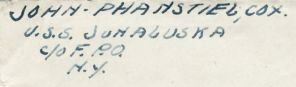 JOHN-PHANSTIEL, COX.
U.S.S. JUNALUSKA
c/o F.P.O.
N.Y.